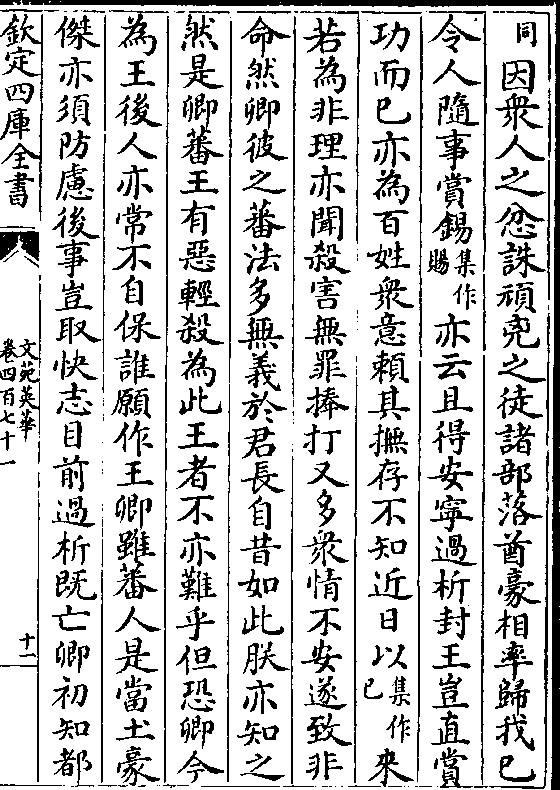 同因衆人之忿誅頑兇之徒諸部落酋豪相率歸我已
令人隨事賞錫集作賜亦云且得安寧過析封王豈直賞
功而已亦為百姓衆意賴其撫存不知近日以集作已來
若為非理亦聞殺害無罪捧打又多衆情不安遂致非
命然卿彼之蕃法多無義於君長自昔如此朕亦知之
然是卿蕃王有惡輕殺為此王者不亦難乎但恐卿今
為王後人亦常不自保誰願作王卿雖蕃人是當土豪
傑亦須防慮後事豈取快志目前過析既亡卿初知都
欽定四庫全書
文苑英華
卷四百七十一
十二